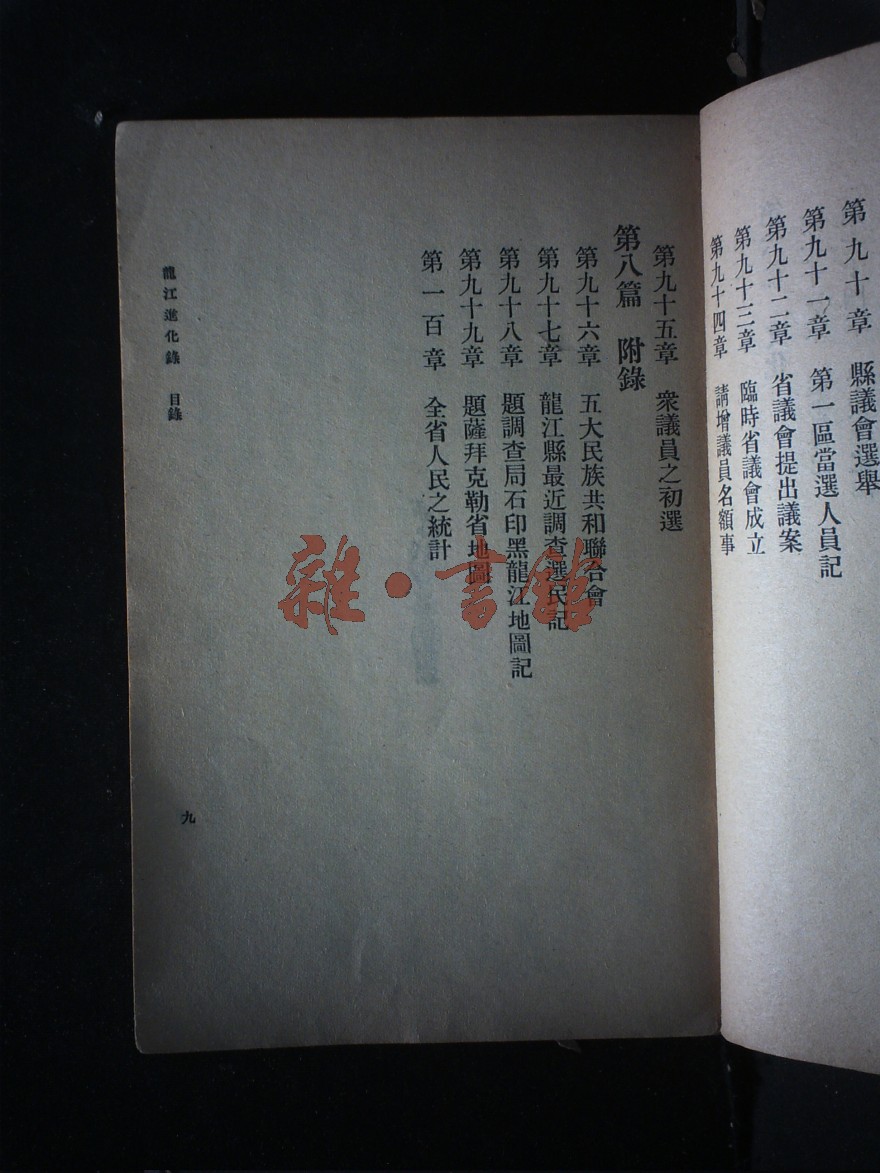 第九十章　縣議會選舉
第九十一章　第一區當選人員記
第九十二章　省議會提出議案
第九十三章　臨時省議會成立
第九十四章　請增議員名額事
第九十五章　衆議員之初選
第八篇　附錄
第九十六章　五大民族共和聯合會
第九十七章　龍江縣最近調查選民記
第九十八章　題調查局石印黑龍江地圖記
第九十九章　題薩拜克勒省地圖
第一百章　全省人民之統計
龍江進化錄　目錄
九
雜·書館